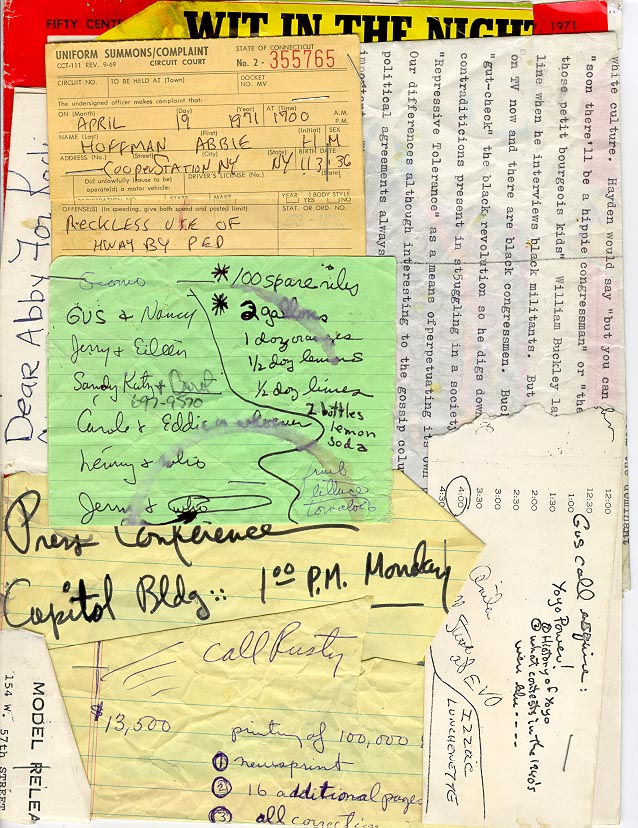 FIFTY CENT
WIT IN THE NIGHT
, 1971
UNIFORM SUMMONS/COMPLAINT
CCT-111 REV. 9-69 CIRCUIT COURT
STATE OF CONNECTICUT
No. 2 - 355765
CIRCUIT NO. TO BE HELD AT (Town) DOCKET NO. MV
The undersigned officer makes complaint that:
ON (Month) (Day) (Year) AT (Time) A.M. P.M.
APRIL 19 1971 1700
NAME (Last) (First) (Initial) SEX
HOFFMAN ABBIE H M
ADDRESS (No.) (Street) (City) BIRTH DATE
COOPERSTATION NY NY 11 3 36
Did unlawfully (cause to be operated) a motor vehicle:
DRIVER'S LICENSE (No.)
YEAR BODY STYLE
YES NO
OFFENSE(S) (In speeding, give both speed and posted limit) STAT. OR ORD. NO.
RECKLESS USE OF
HWAY BY PED
white culture. Hayden would say "but you can
"soon there'll be a hippie congressman" or "the
those petit bourgeois kids" William Buckley la
line when he interviews black militants. But
on TV now and there are black congressmen. Buc
"gut-check" the black revolution so he digs dow
contraditicions present in stŏuggling in a society
"Repressive Tolerance" as a means of perpetuating its own
Our differences although interesting to the gossip colu
political agreements always
Dear Abby For
* 100 spare ribs
Gus & Nancy
* 2 gallons
1 doz oranges
Jerry & Eileen
1/2 doz lemons
Sandy Katz & Carol
697-9570
1/2 doz limes
Carole & Eddie or whoever
2 bottles
lemon
soda
Lenny &
fruit
lettuce
tomatoes
Jerry &
Press Conference
Capitol Bldg :: 1 00 P.M. Monday
call Rusty
$13,500
printing of 100,000
① newsprint
② 16 additional page
③ all correction
12:30
12:00
1:00
1:30
2:00
2:30
3:00
3:30
4:00
4:30
Gus call esquire:
YoYo Power!
① History of Yoyo
② what contests in the 1940's
were like - - - -
at EVO
IZZAC
LUNCHENETTE
MODEL RELEA
154 W. 57th STREET